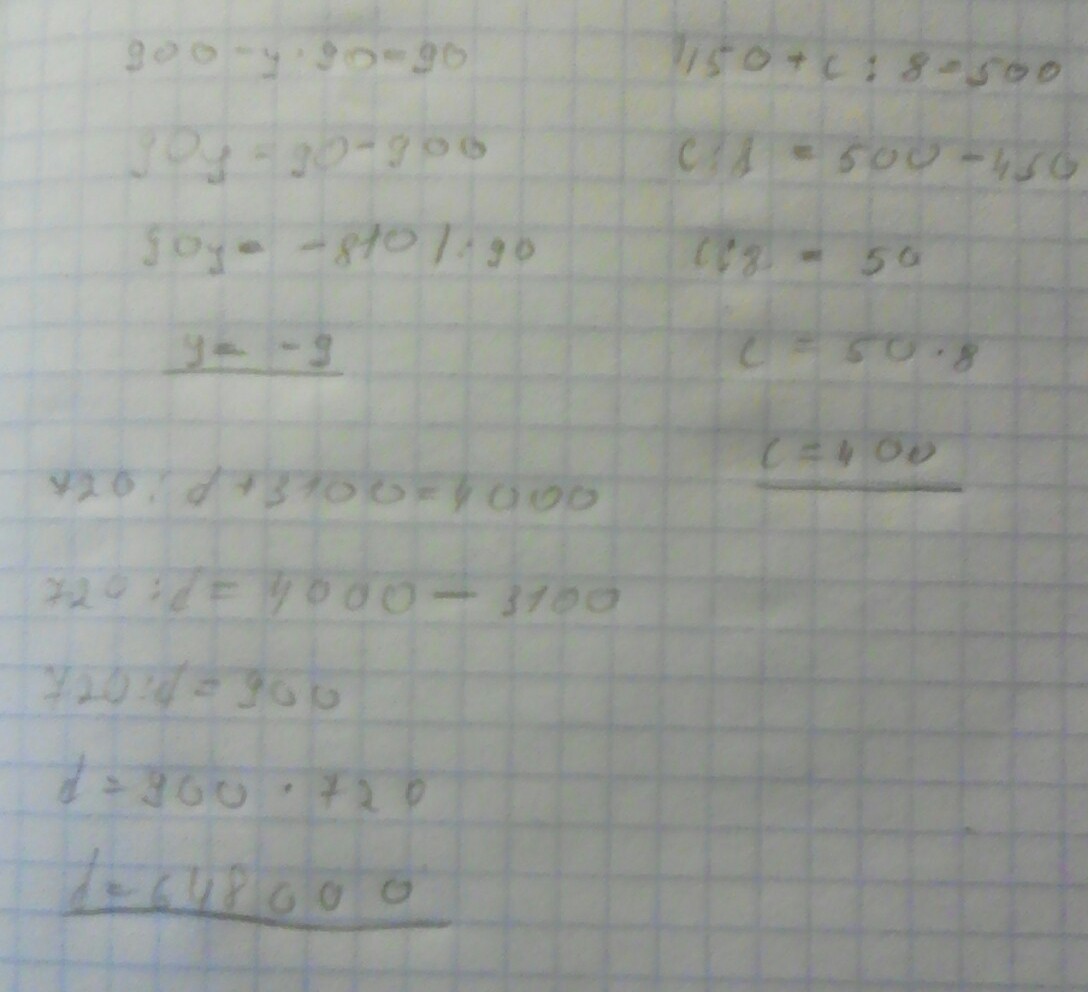 900-y·90=90
90y=90-900
90y= -810 |:90
y= -9
450+c:8=500
c:8 = 500-450
c:8 = 50
c = 50·8
c=400
720:d+3100=4000
720:d= 4000-3100
720:d=900
d=900·720
d=648000